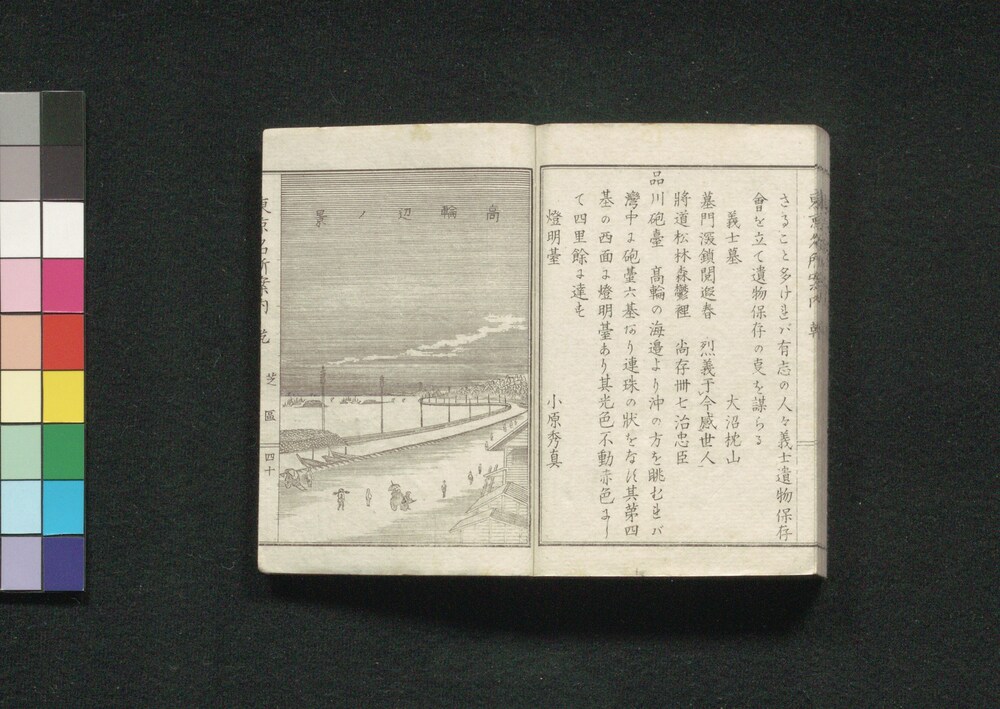 東京名所案内 乾
さること多けれバ有志の人々義士遺物保存
會を立て遺物保存の㕝を謀らる
義士墓 大沼枕山
墓門深鎖閱遐春 烈義于今感世人
將道松林森鬱裡 尚存卌七治忠臣
品川砲臺 高輪の海邉より沖の方を眺むれバ
灣中に砲臺六基あり連珠の狀をなす其第四
基の西面に燈明臺あり其光色不動赤色にし
て四里餘に達す
燈明臺 小原秀真
高輪辺ノ景
東京名所案内 乾 芝區 四十